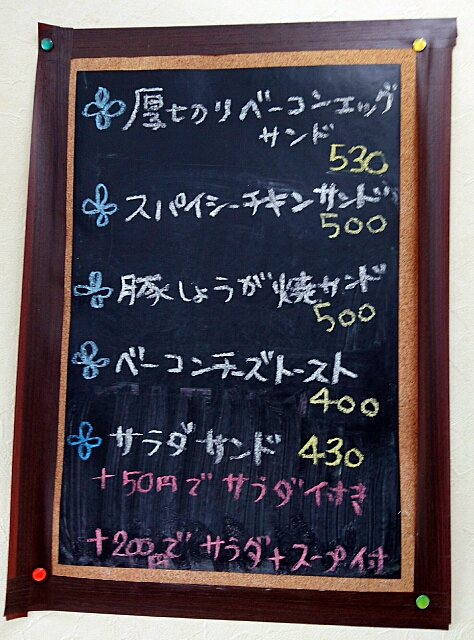 厚切りベーコンエッグ
サンド
530
スパイシーチキンサンド
500
豚しょうが焼サンド
500
ベーコンチーズトースト
400
サラダサンド 430
+50円で サラダ付き
+200円で サラダ+スープ付